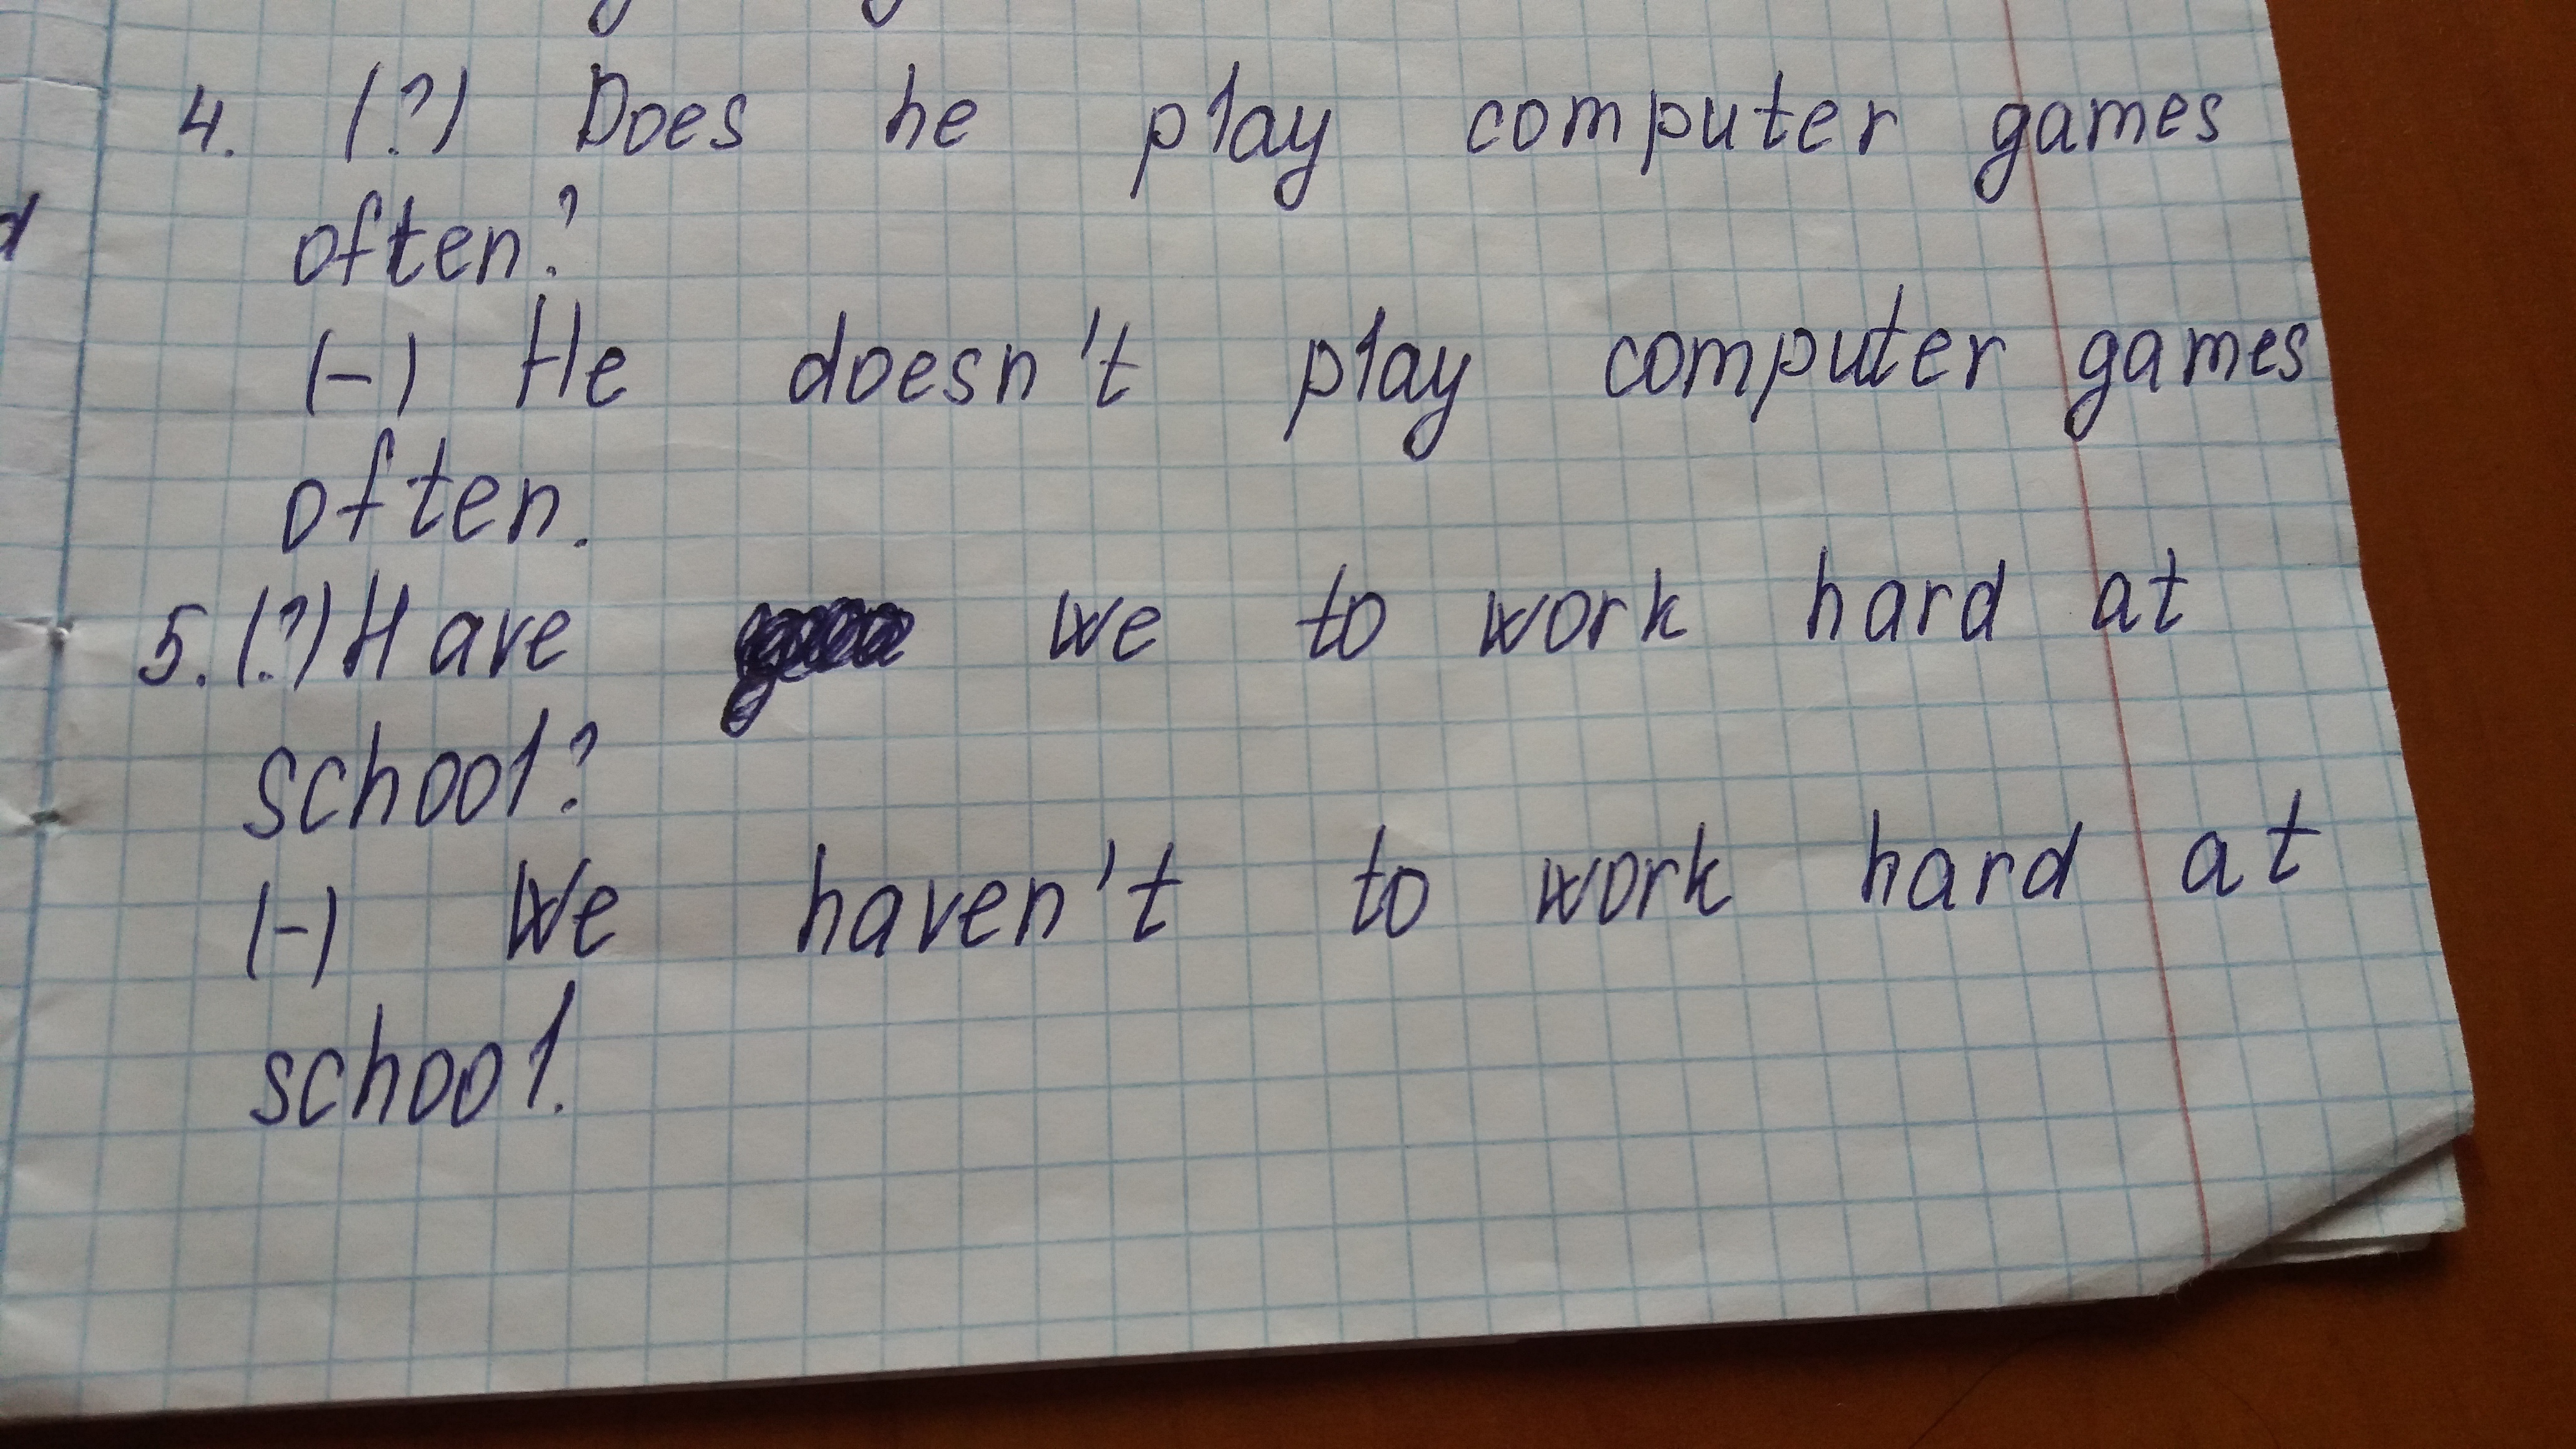 4. (?) Does he play computer games
often?
(-) He doesn't play computer games
often.
5. (?) Have we to work hard at
school?
(-) We haven't to work hard at
school.